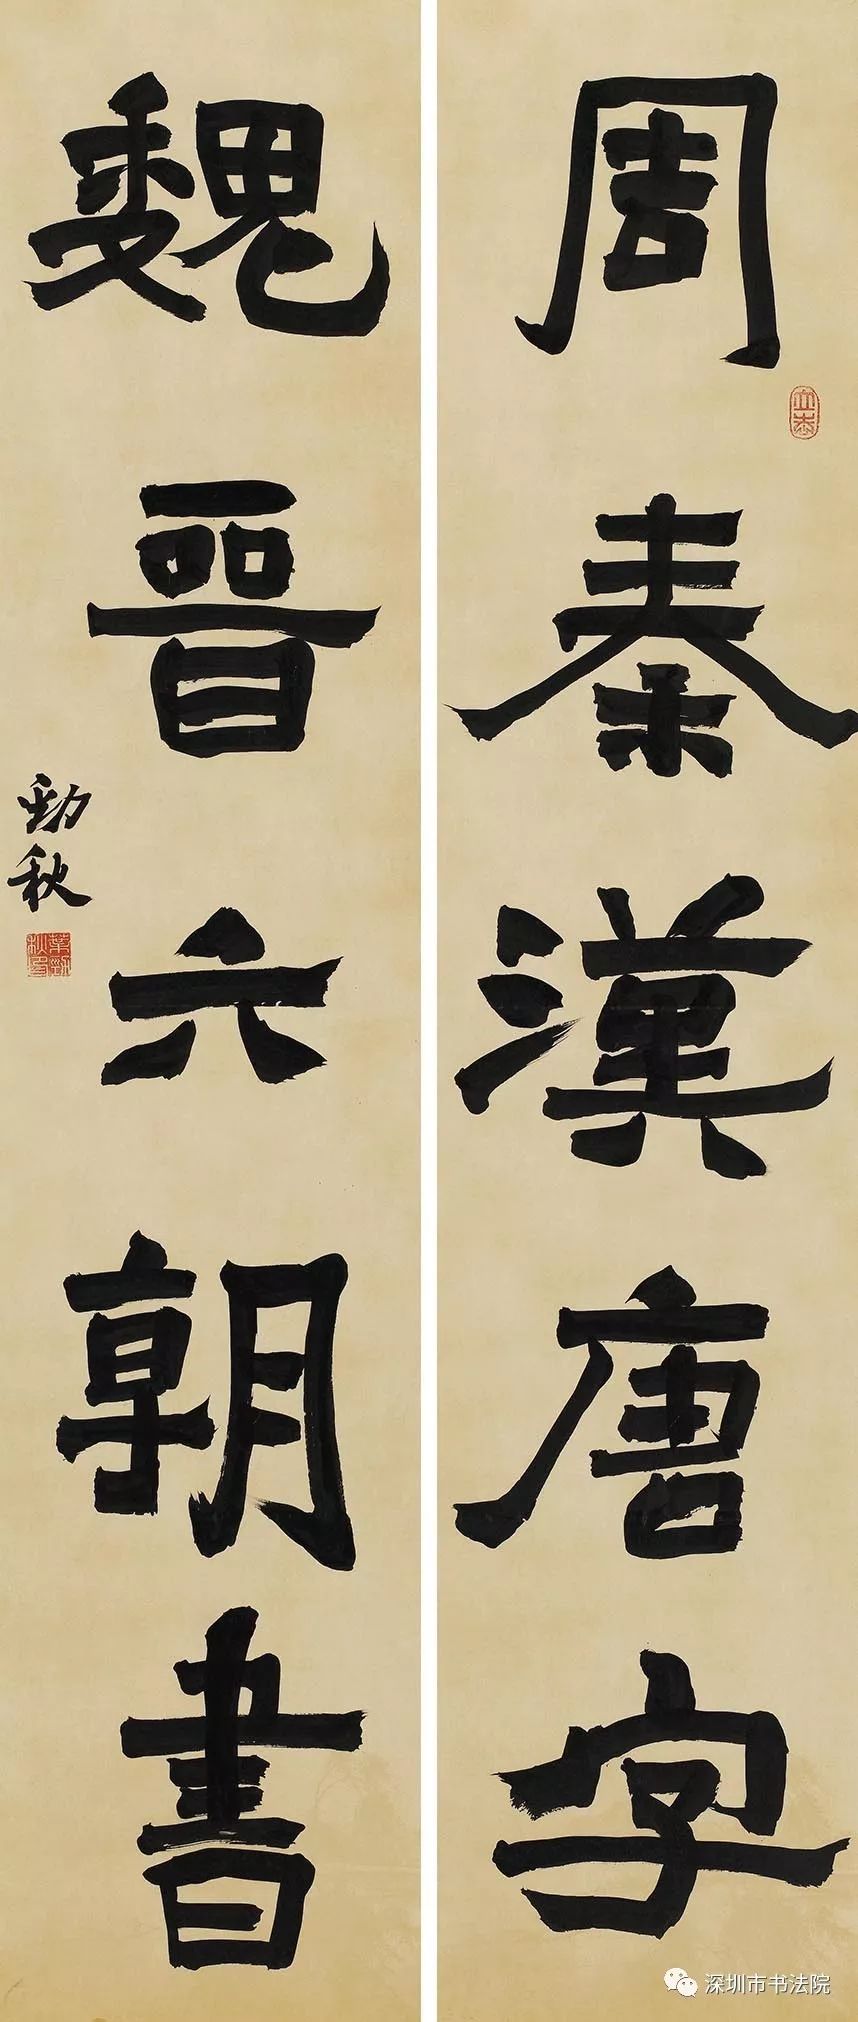 周秦漢唐字
魏晉六朝書
勁秋
葉勁秋印
深圳市书法院